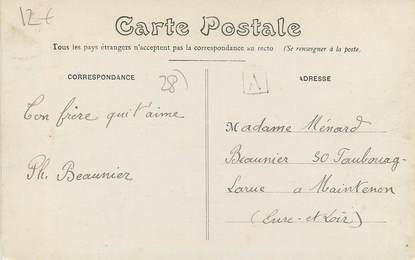 12€
Carte Postale
Tous les pays étrangers n'acceptent pas la correspondance au recto (Se renseigner à la poste.
CORRESPONDANCE
28)
A
ADRESSE
Ton frère qui t'aime
Ph. Beaunier
Madame Ménard
Beaunier 50 Faubouag-
Larue a Maintenon
(Eure-et-Loir)